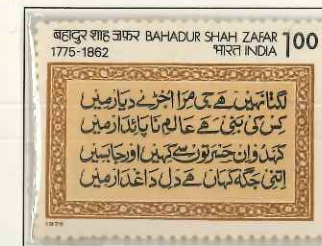 बहादुर शाह ज़फर BAHADUR SHAH ZAFAR
1775-1862 भारत INDIA 100
لگتا نہیں ہے جی مرا اجڑے دیار میں
کس کی بنی ہے عالم ناپائدار میں
کہدو ان حسرتوں سے کہیں اور جابسیں
اتنی جگہ کہاں ہے دل داغدار میں
1975